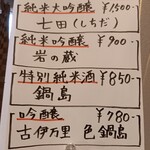 純米大吟醸 ¥1500
七田(しちだ)
純米吟醸 ¥900
岩の蔵
特別純米酒 ¥850
鍋島
吟醸 ¥780
古伊万里 色鍋島